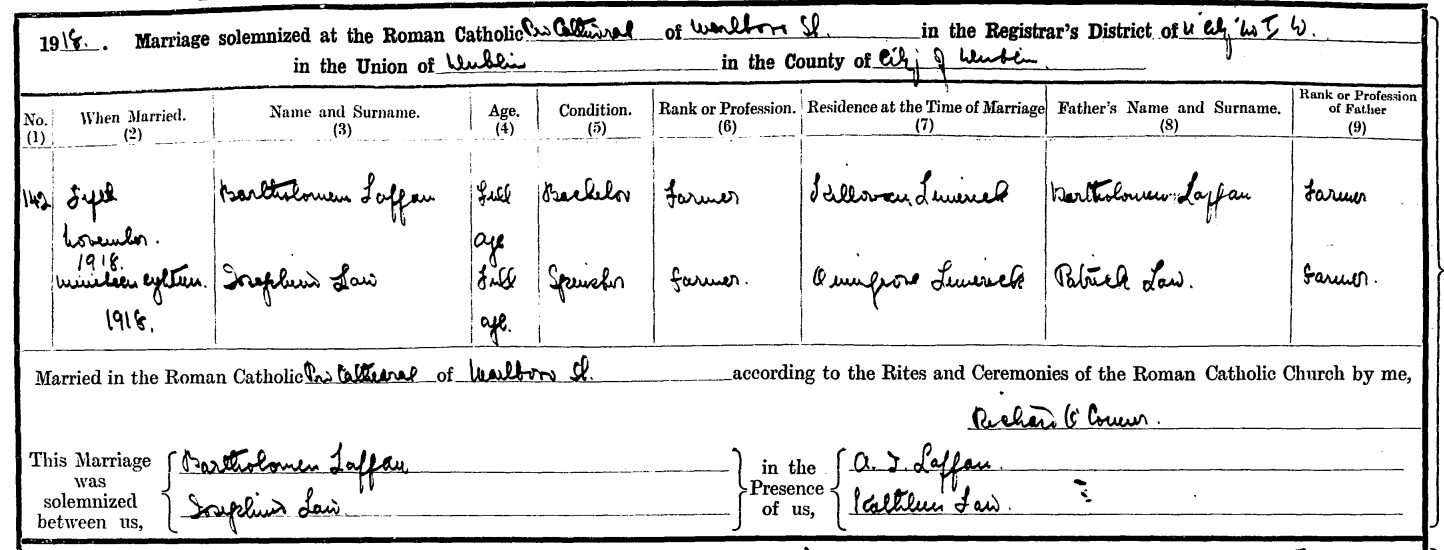 1918. Marriage solemnized at the Roman Catholic Pro Cathedral of Marlboro St. in the Registrar's District of
in the Union of Dublin in the County of City of Dublin
No. (1) When Married. (2) Name and Surname. (3) Age. (4) Condition. (5) Rank or Profession. (6) Residence at the Time of Marriage (7) Father's Name and Surname. (8) Rank or Profession of Father (9)
142 November. 1918. Bartholomew Laffan Full age Bachelor Farmer Limerick Bartholomew Laffan Farmer
1918. Josephine Law Full age. Spinster Farmer. Limerick Patrick Law. Farmer.
Married in the Roman Catholic Pro Cathedral of Marlboro St. according to the Rites and Ceremonies of the Roman Catholic Church by me,
Richard
This Marriage was solemnized between us, Bartholomew Laffan in the Presence of us, A. J. Laffan.
Josephine Law Kathleen Law.